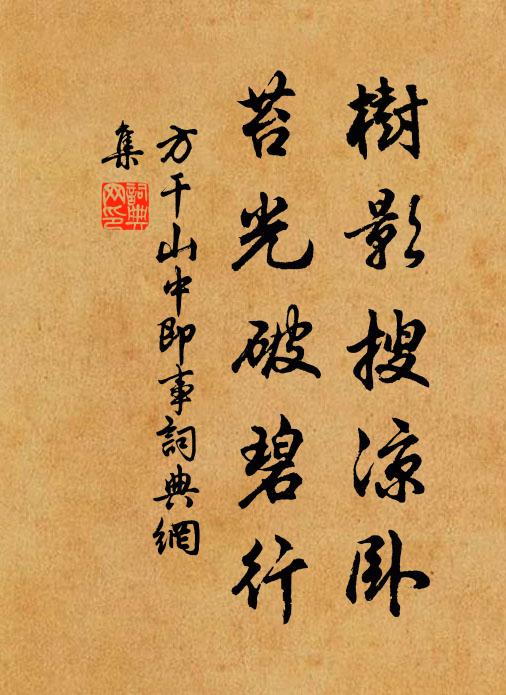 樹影搜涼臥
苔光破碧行
方干山中即事詞典網
集
詞典
网印